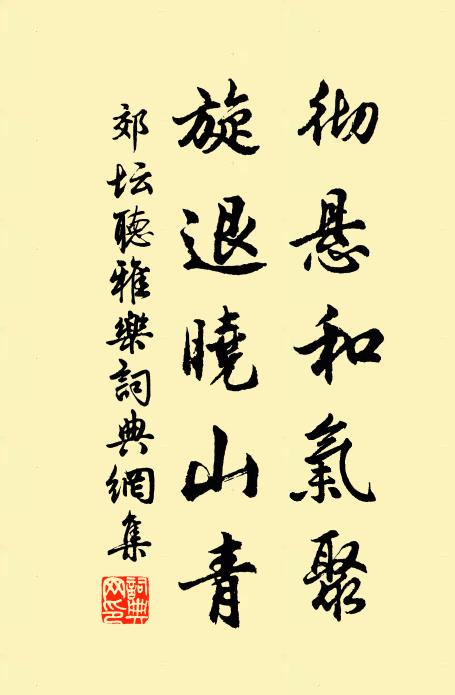 彻悬和氣聚
旋退曉山青
郊坛聽雅樂詞典網集
詞典网印